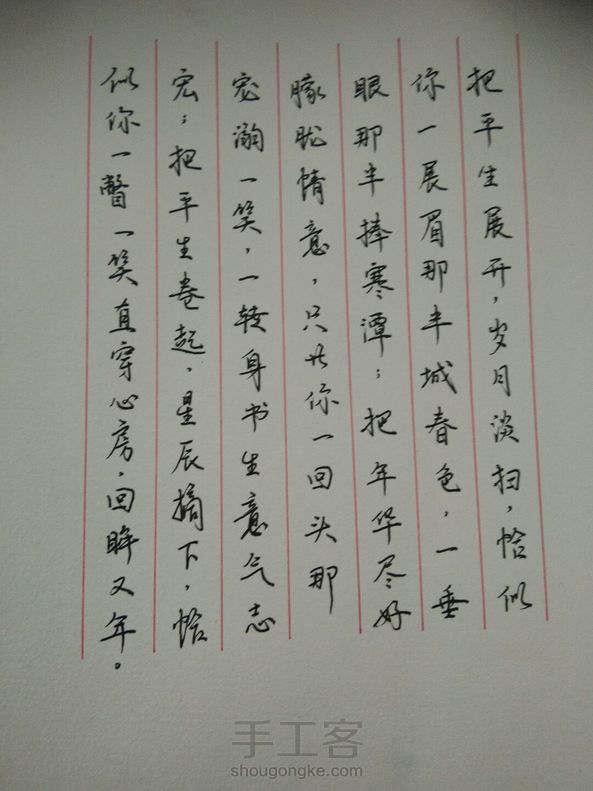 把平生展开，岁月淡扫，恰似
你一展眉那半城春色，一垂
眼那半捧寒潭；把年华尽好
朦胧情意，只共你一回头那
宠溺一笑，一转身书生意气志
宏；把平生卷起，星辰摘下，恰
似你一瞥一笑直穿心房，回眸又年。
手工客
shougongke.com